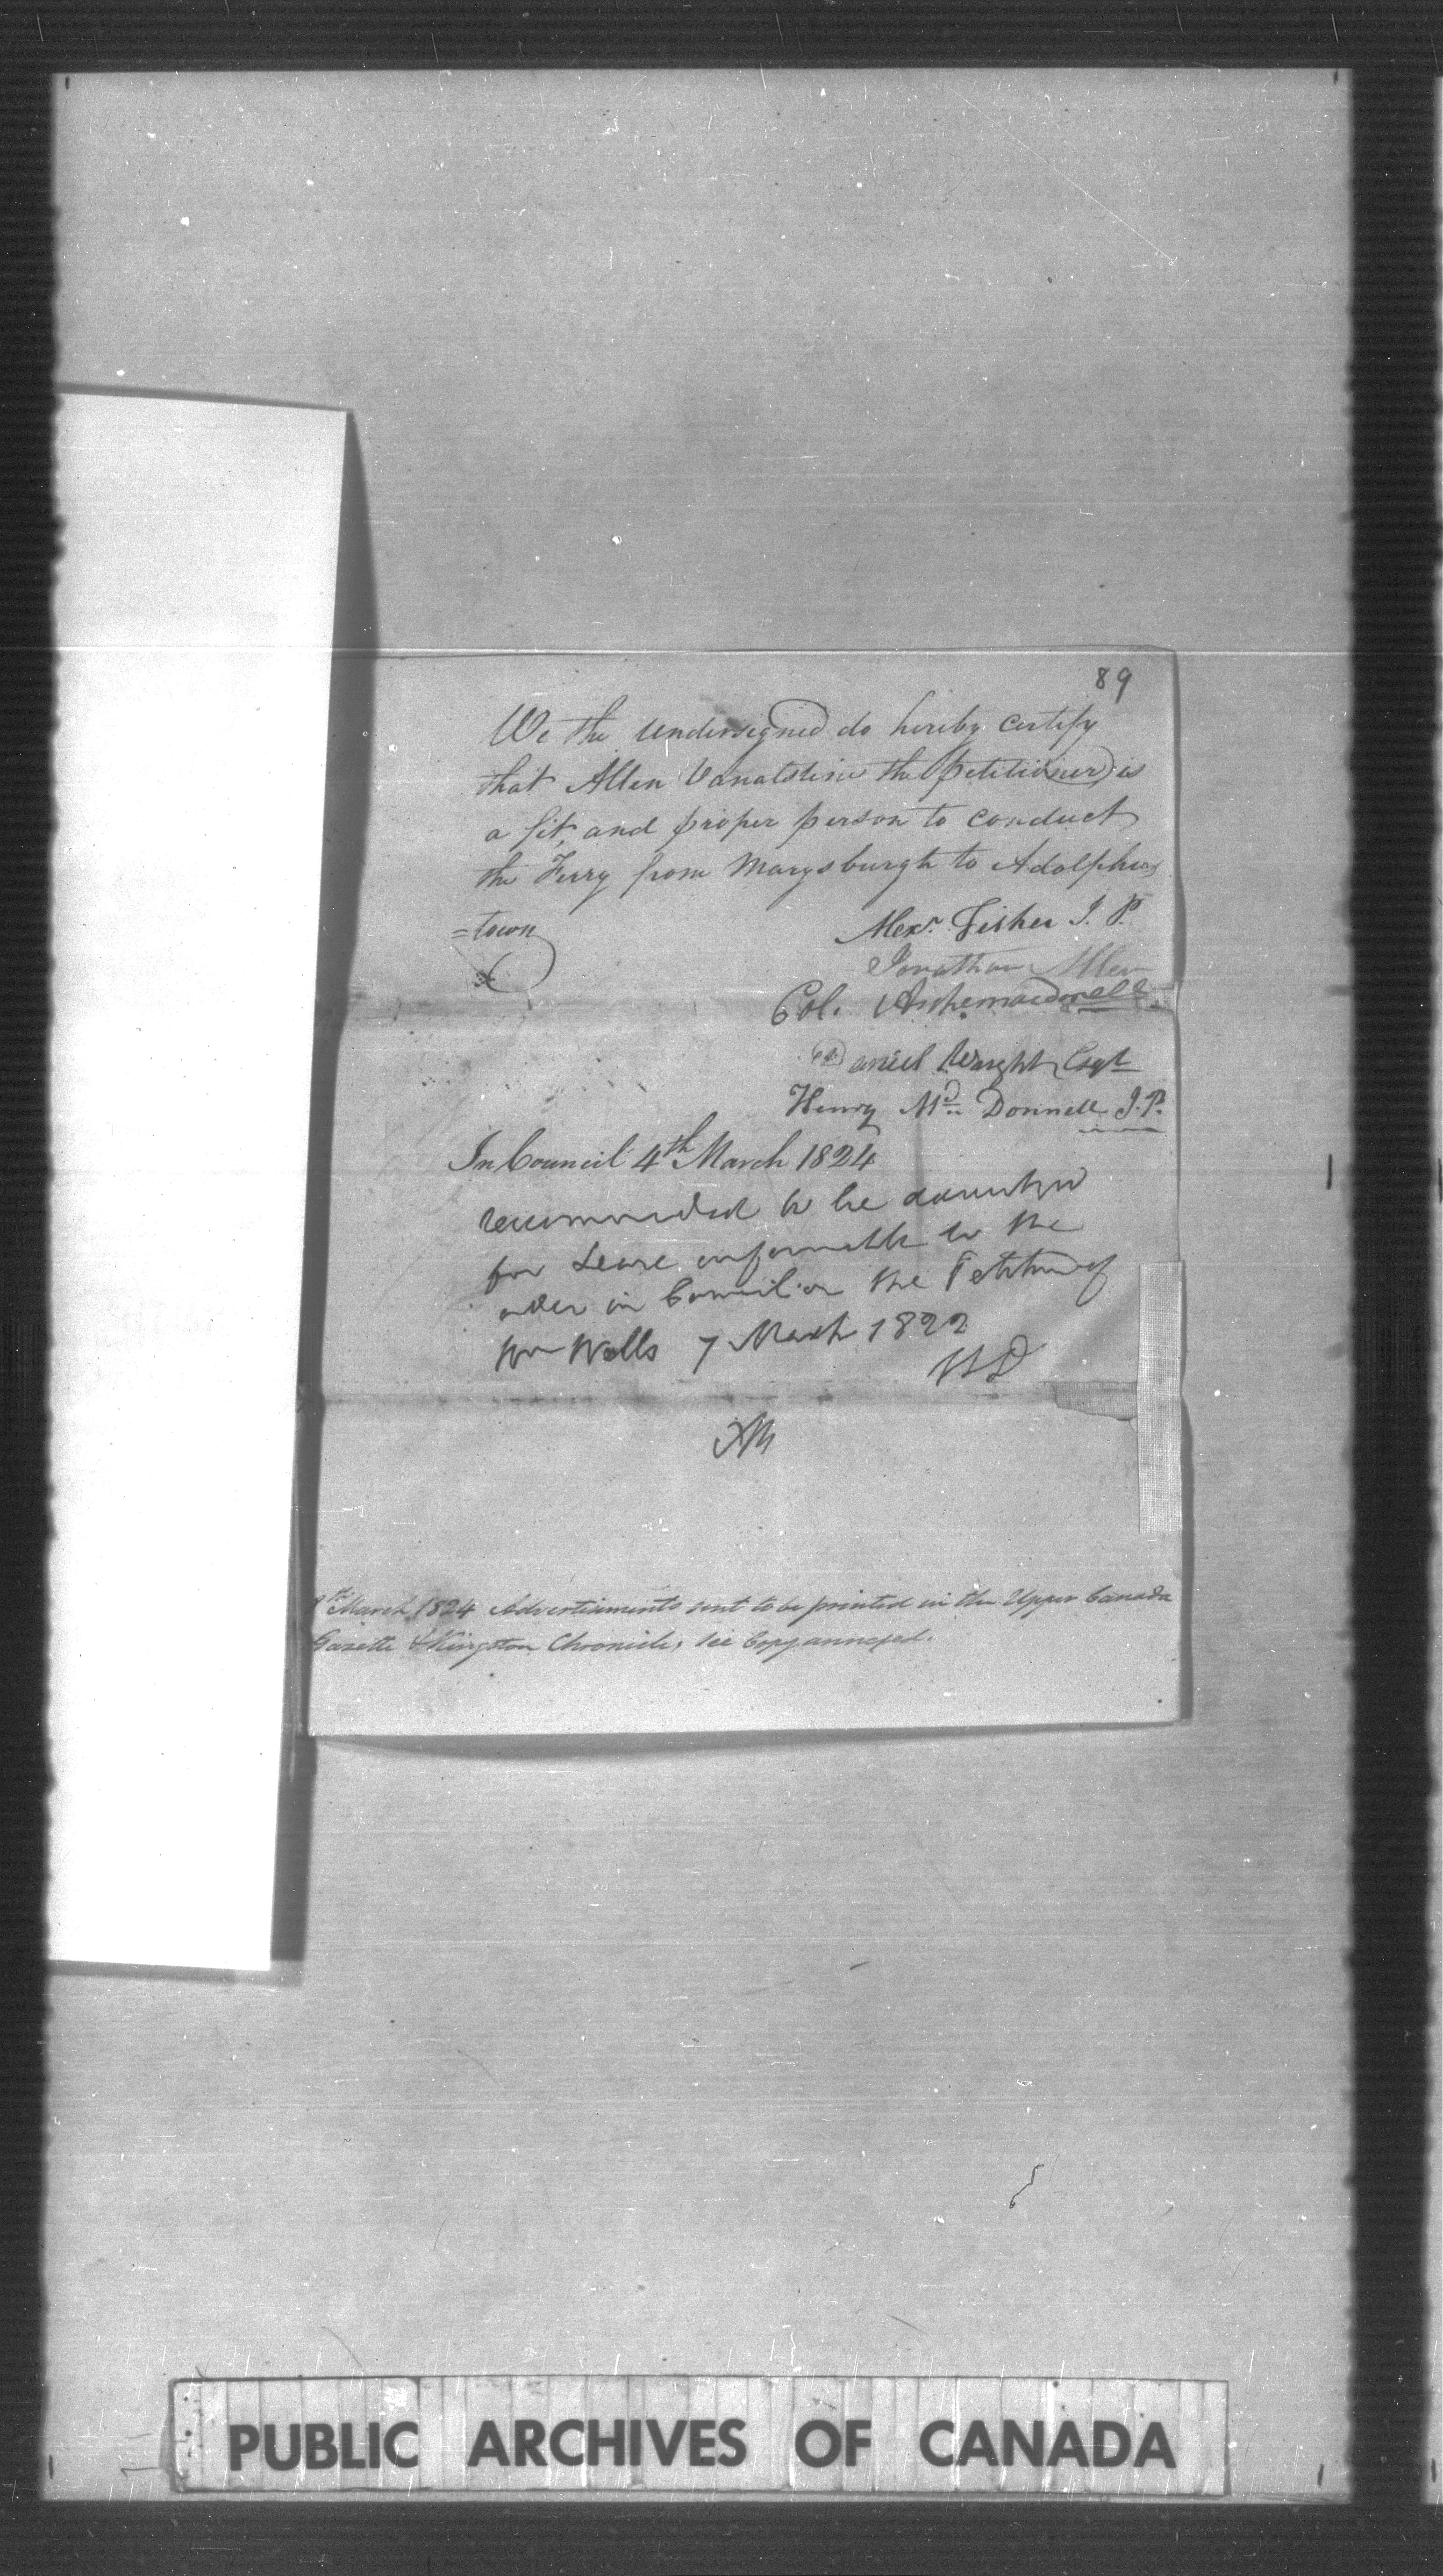 89
We the undersigned do hereby certify
that Allen Vanalstine the petitioner is
a fit, and proper person to conduct
the Ferry from Marysburgh to Adolphus
=town
Alexr. Fisher J. P.
Jonathan Allen
Col. Archemacdonell
Daniel Wright Esqr
Henry Mc Donnell J.P.
In Council 4th March 1824
recommended to be advertised
for Lease conformable to the
order in Council on the Petition of
Wm Wells 7 March 1822
March 1824 Advertisments sent to be printed in the Upper Canada
Gazette & Kingston Chronicle, see Copy annexed.
PUBLIC ARCHIVES OF CANADA